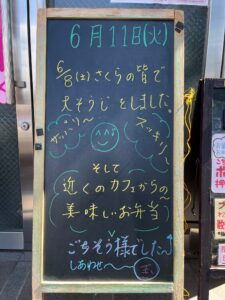 6月11日(火)
6/8(土)さくらの皆で
大そうじをしました
サッパリ〜
スッキリ〜
そして
近くのカフェからの〜
美味しいお弁当
ごちそう様でした〜
しあわせ〜